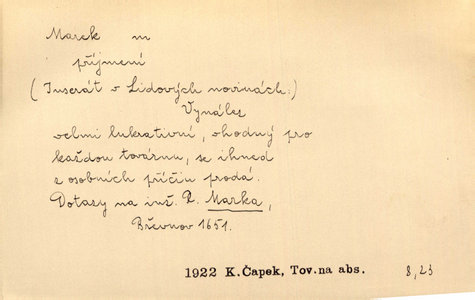 Marek m
příjmení
(Inserát v Lidových novinách:)
Vynález
velmi lukrativní, vhodný pro
každou továrnu, se ihned
z osobních příčin prodá.
Dotazy na inž. R. Marka,
Břevnov 1651.
1922 K.Čapek, Tov.na abs. 8,23